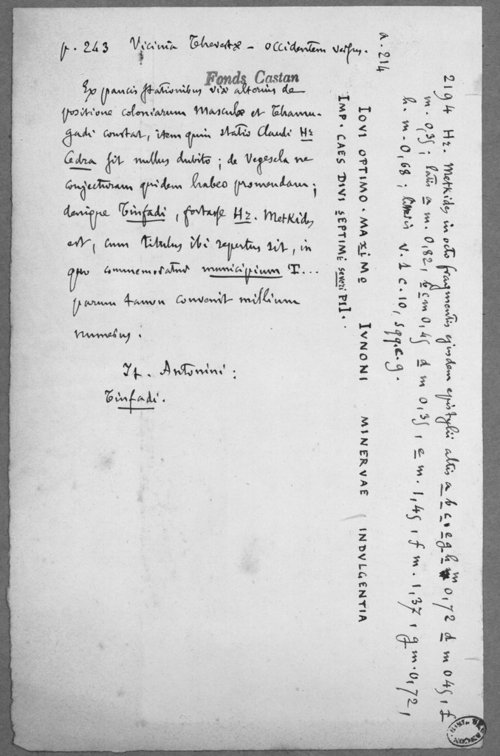 p. 243 Vicinia Thevestæ – occidentem versus.
Fonds Castan
Ex paucis stationibus viæ alterius de
positione coloniarum Masculæ et Thamu-
gadi constat, item quin statio Claudi Hr
Cedra sit nullus dubito ; de Vegesela ne
conjecturam quidem habeo promendam ;
denique Tinfadi, fortasse Hr. Metkides
est, cum titulus ibi repertus sit, in
quo commemoratur municipium T...
parum tamen convenit millium
numerus :
It. Antonini :
Tinfadi.
a. 214
2194 Hr. Metkides in octo fragmentis ejusdem epistylii altis a b c e g h m 0,72 d m 0,45, f
m. 0,35 ; latis a m. 0,82, b c m 0,45 d m 0,35, e m. 1,45, f m. 1,37, g m. 0,72,
h. m. 0,68 ; v. 1 c. 10, sqq. c. 9.
IOVI OPTIMO · MAXIMO IVNONI MINERVAE INDVLGENTIA
IMP. CAES DIVI SEPTIMI severi PII.